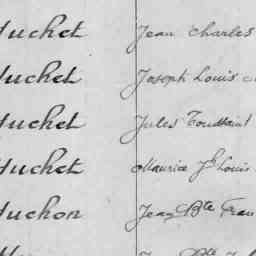 Huchet Jean Charles
Huchet Joseph Louis
Huchet Jules Toussaint
Huchet Maurice Jh Louis
Huchon Jean Bte Fran